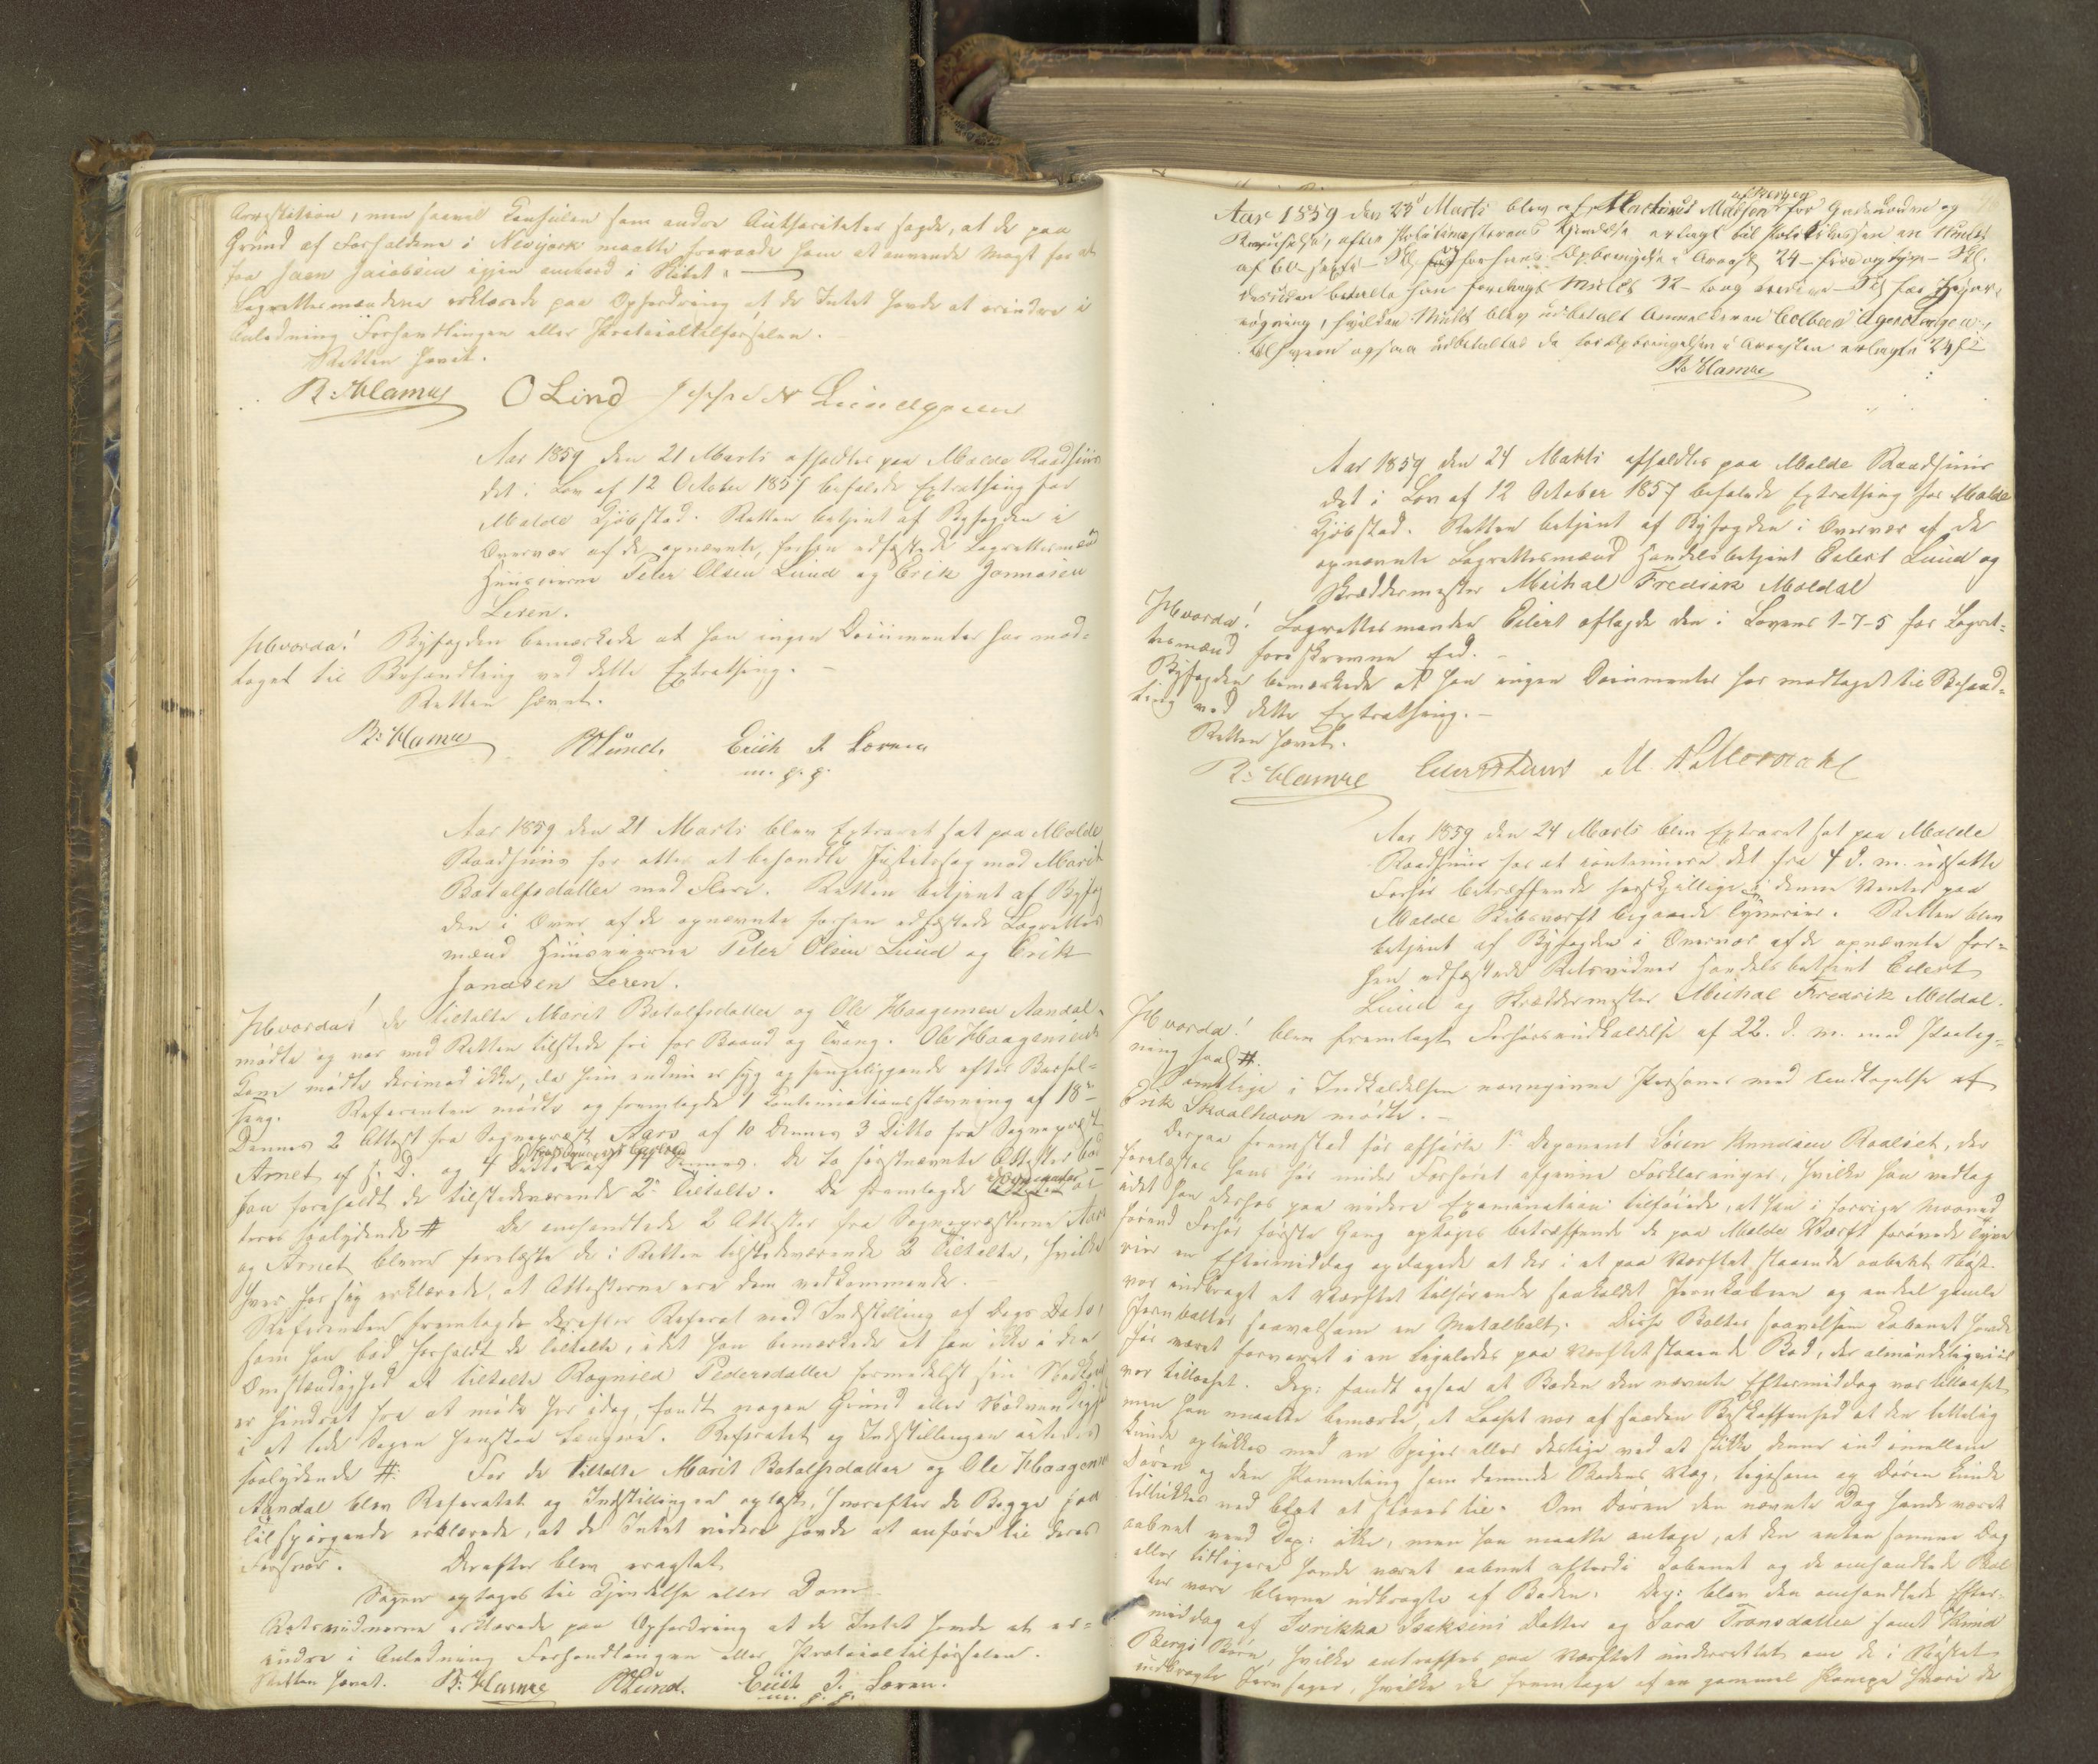 Arrestation, men saavel Consulen som andre Authoriteter sagde, at de paa
Grund af Forholdene i Newyork maatte fraraade ham at anvende Magt for at
faa Jacobsen igjen ombord i Skibet.
Lagrettesmændene erklærede paa Opfordring at de Intet havde at erindre i
Anledning Forhandlingen eller Protocoltilførselen.
Retten hævet.
R: Hamre O Lind Lundgreen
Aar 1859 den 21 Marts afholdtes paa Molde Raadhuus
det i Lov af 12 October 1857 befalede Extrathing for
Molde Kjøbstad. Retten betjent af Byfogden i
Overvær af de opnævnte, forhen edfæstede Lagrettesmænd
Huuseierne Peter Olsen Lund og Erik Jonnasen
Leren.
Hvorda! Byfogden bemærkede at han ingen Documenter har mod=
taget til Behandling ved dette Extrathing.
Retten hævet.
R: Hamre P Lund. Erich J. Loeren
m. p. p.
Aar 1859 den 21 Marts blev Extraret sat paa Molde
Raadhuus for atter at behandle Justitssag mod Marit
Botolfsdatter med Flere. Retten betjent af Byfog
den i Overv. af de opnævnte forhen edfæstede Lagrettes
mænd Huuseierne Peter Olsen Lund og Erik
Jonasen Leren.
Hvorda! de tiltalte Marit Botolfsdatter og Ole Haagensen Aandal
mødte og var ved Retten tilstede fri for Baand og Tvang. Ole Haagensens
Kone mødte derimod ikke, da hun endnu er syg og sengeliggende efter Barsel=
seng. Referenten mødte og fremlagde 1 Continuationsstævning af 18de
Dennes 2 Attest fra Sognepræst Aars af 10 Dennes 3 Ditto fra Sognepræst
Arnet af s. D. og 4 af 14 Dennes. De to førstnævnte Attester bød
han foreholdt de tilstedeværende 2de Tiltalte. De fremlagde
teres saalydende # De omhandlede 2 Attester fra Sognepræsterne Aars
og Arnet bleve forelæste de i Retten tilstedeværende 2 Tiltalte, hvilke
hver for sig erklærede, at Attesterne ere dem vedkommende.
Referenten fremlagde derefter Referat med Indstilling af Dags Dato,
som han bød forholdt de tiltalte, idet han bemærkede at han ikke i den
Omstændighed at tiltalte Ragnild Pedersdatter formedelst sin
er hindret fra at møde her idag, fandt nogen Grund eller Nødvendighed
i at lade Sagen henstaa længere. Referatet og Indstillingen
saalydende #. For de tiltalte Marit Botolfsdatter og Ole Haagensen
Aandal blev Referatet og Indstillingen oplæst, hvorefter de Begge paa
Tilspørgende erklærede, at de Intet videre havde at anføre til deres
Forsvar. Derefter blev eragtet
Sagen optages til Kjendelse eller Dom
Retsvidnerne erklærede paa Opfordring at de Intet havde at er=
indre i Anledning Forhandlingen eller Protocoltilførselen.
Retten hævet. R: Hamre P Lund. Erich J. Loren.
m. p. p.
af Bergen
Aar 1859 den 23 Marts blev af Martinus Madsen for Gadeuorden og
efter Politimesterens Kjendelse erlagt til Politikassen en Mulct
af 60 - Skl for hans Opbringelse i Arrest 24 - fire og tyve - Skl.
desuden betalte han forelagt Mulct
hvilken Mulct blev udbetalt Anmelderen Colbein
udbetaltes de for Opbringelsen i Arresten erlagte 24 s
R: Hamre
Aar 1859 den 24 Marts afholdtes paa Molde Raadhuus
det i Lov af 12 October 1857 befalede Extrathing for Molde
Kjøbstad. Retten betjent af Byfogden i Overvær af de
opnævnte Lagrettesmænd Handelsbetjent Eilert Lund og
Skræddermester Michal Fredrik Moldal
Hvorda! Lagrettesmanden Eilert aflagde den i Lovens 1-7-5 for Lagret=
tesmænd foreskrevne Eed.
Byfogden bemærkede at han ingen Documenter har modtaget til Behand=
ling ved dette Extrathing.
Retten hævet.
R: Hamre Eilert Lund M.
Aar 1859 den 24 Marts blev Extraret sat paa Molde
Raadhuus for at continuere det fra 4 d. m. udsatte
Forhør betræffende forskjellige i denne Vinter paa
Molde Skibsværft begaaede Tyverier. Retten blev
betjent af Byfogden i Overvær af de opnævnte for=
hen edfæstede Retsvidner Handelsbetjent Eilert
Lund og Skræddermester Michal Fredrik Moldal.
Hvorda! blev fremlagt Forhørsindkaldelse af 22. d. m. med Paateg=
ning saal #.
Samtlige i Indkaldelsen navngivne Personer med Undtagelse af
Erik Skaalhavn mødte.
Derpaa fremstod før afhørte 1ste Deponent Søren Knudsen Roaldset, der
forelæstes hans før under Forhøret afgivne Forklaringer, hvilke han vedtog
idet han derhos paa videre Examination tilføiede, at han i forrige Maaned
førend Forhør første Gang optoges betræffende de paa Molde Værft forøvede Tyve
rier en Eftermiddag opdagede at der i et paa Værftet staaende aabent
var indbragt et Værftet tilhørende saakaldt Jernkabeen og endel gamle
Jernbolter saavelsom en Metalbolt. Disse Bolter saavelsom havde
før været forvaret i en ligeledes paa Værftet staaende Bod, der almindeligviis
var tillaaset. Dep: fandt ogsaa at Boden den nævnte Eftermiddag var tillaaset
men han maatte bemærke, at Laaset var af saadan Beskaffenhed at den lettelig
kunde oplukkes med en Spiger eller deslige ved at stikke denne ind imellem
Døren og den Panneling som dannede Bodens Væg, ligesom og Døren kunde
tillukkes ved blot at slaaes til. Om Døren den nævnte Dag havde været
aabnet veed Dep: ikke, men han maatte antage, at den enten samme Dag
eller tidligere havde været aabnet efterdi og de omhandlede Bol
ter vare blevne udbragte af Boden. Dep: blev den omhandlede Efter=
middag af Isaksens Datter og Sara Transdatter samt Knud
Bergs Børn, hvilke antraffes paa Værftet underrettet om de i
indbragte Jernsager, hvilke de fremtoge af en gammel hvori de